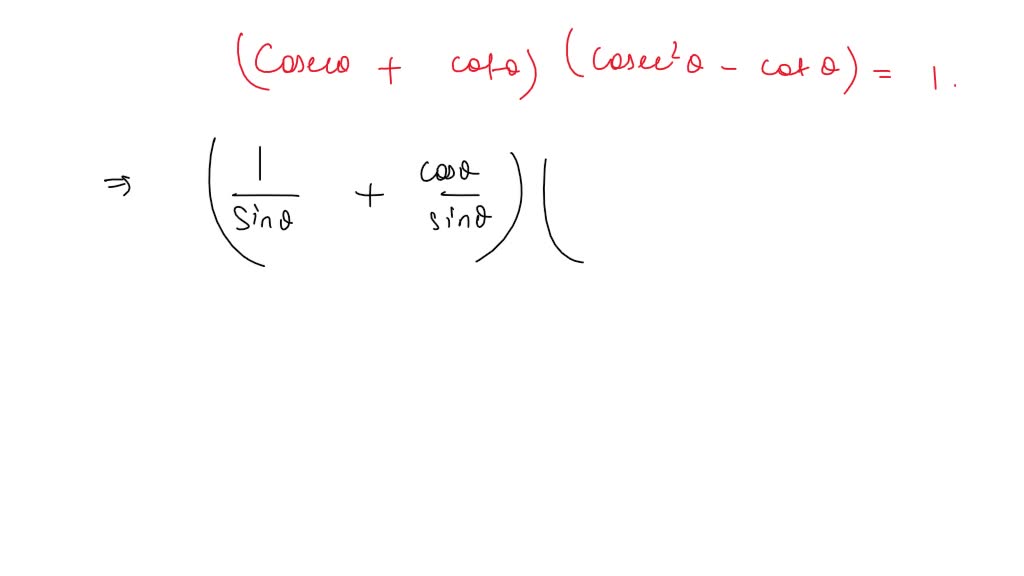 (Cosecθ + cotθ) (cosec²θ - cotθ) = 1.
⇒ (1/sinθ + cosθ/sinθ) (